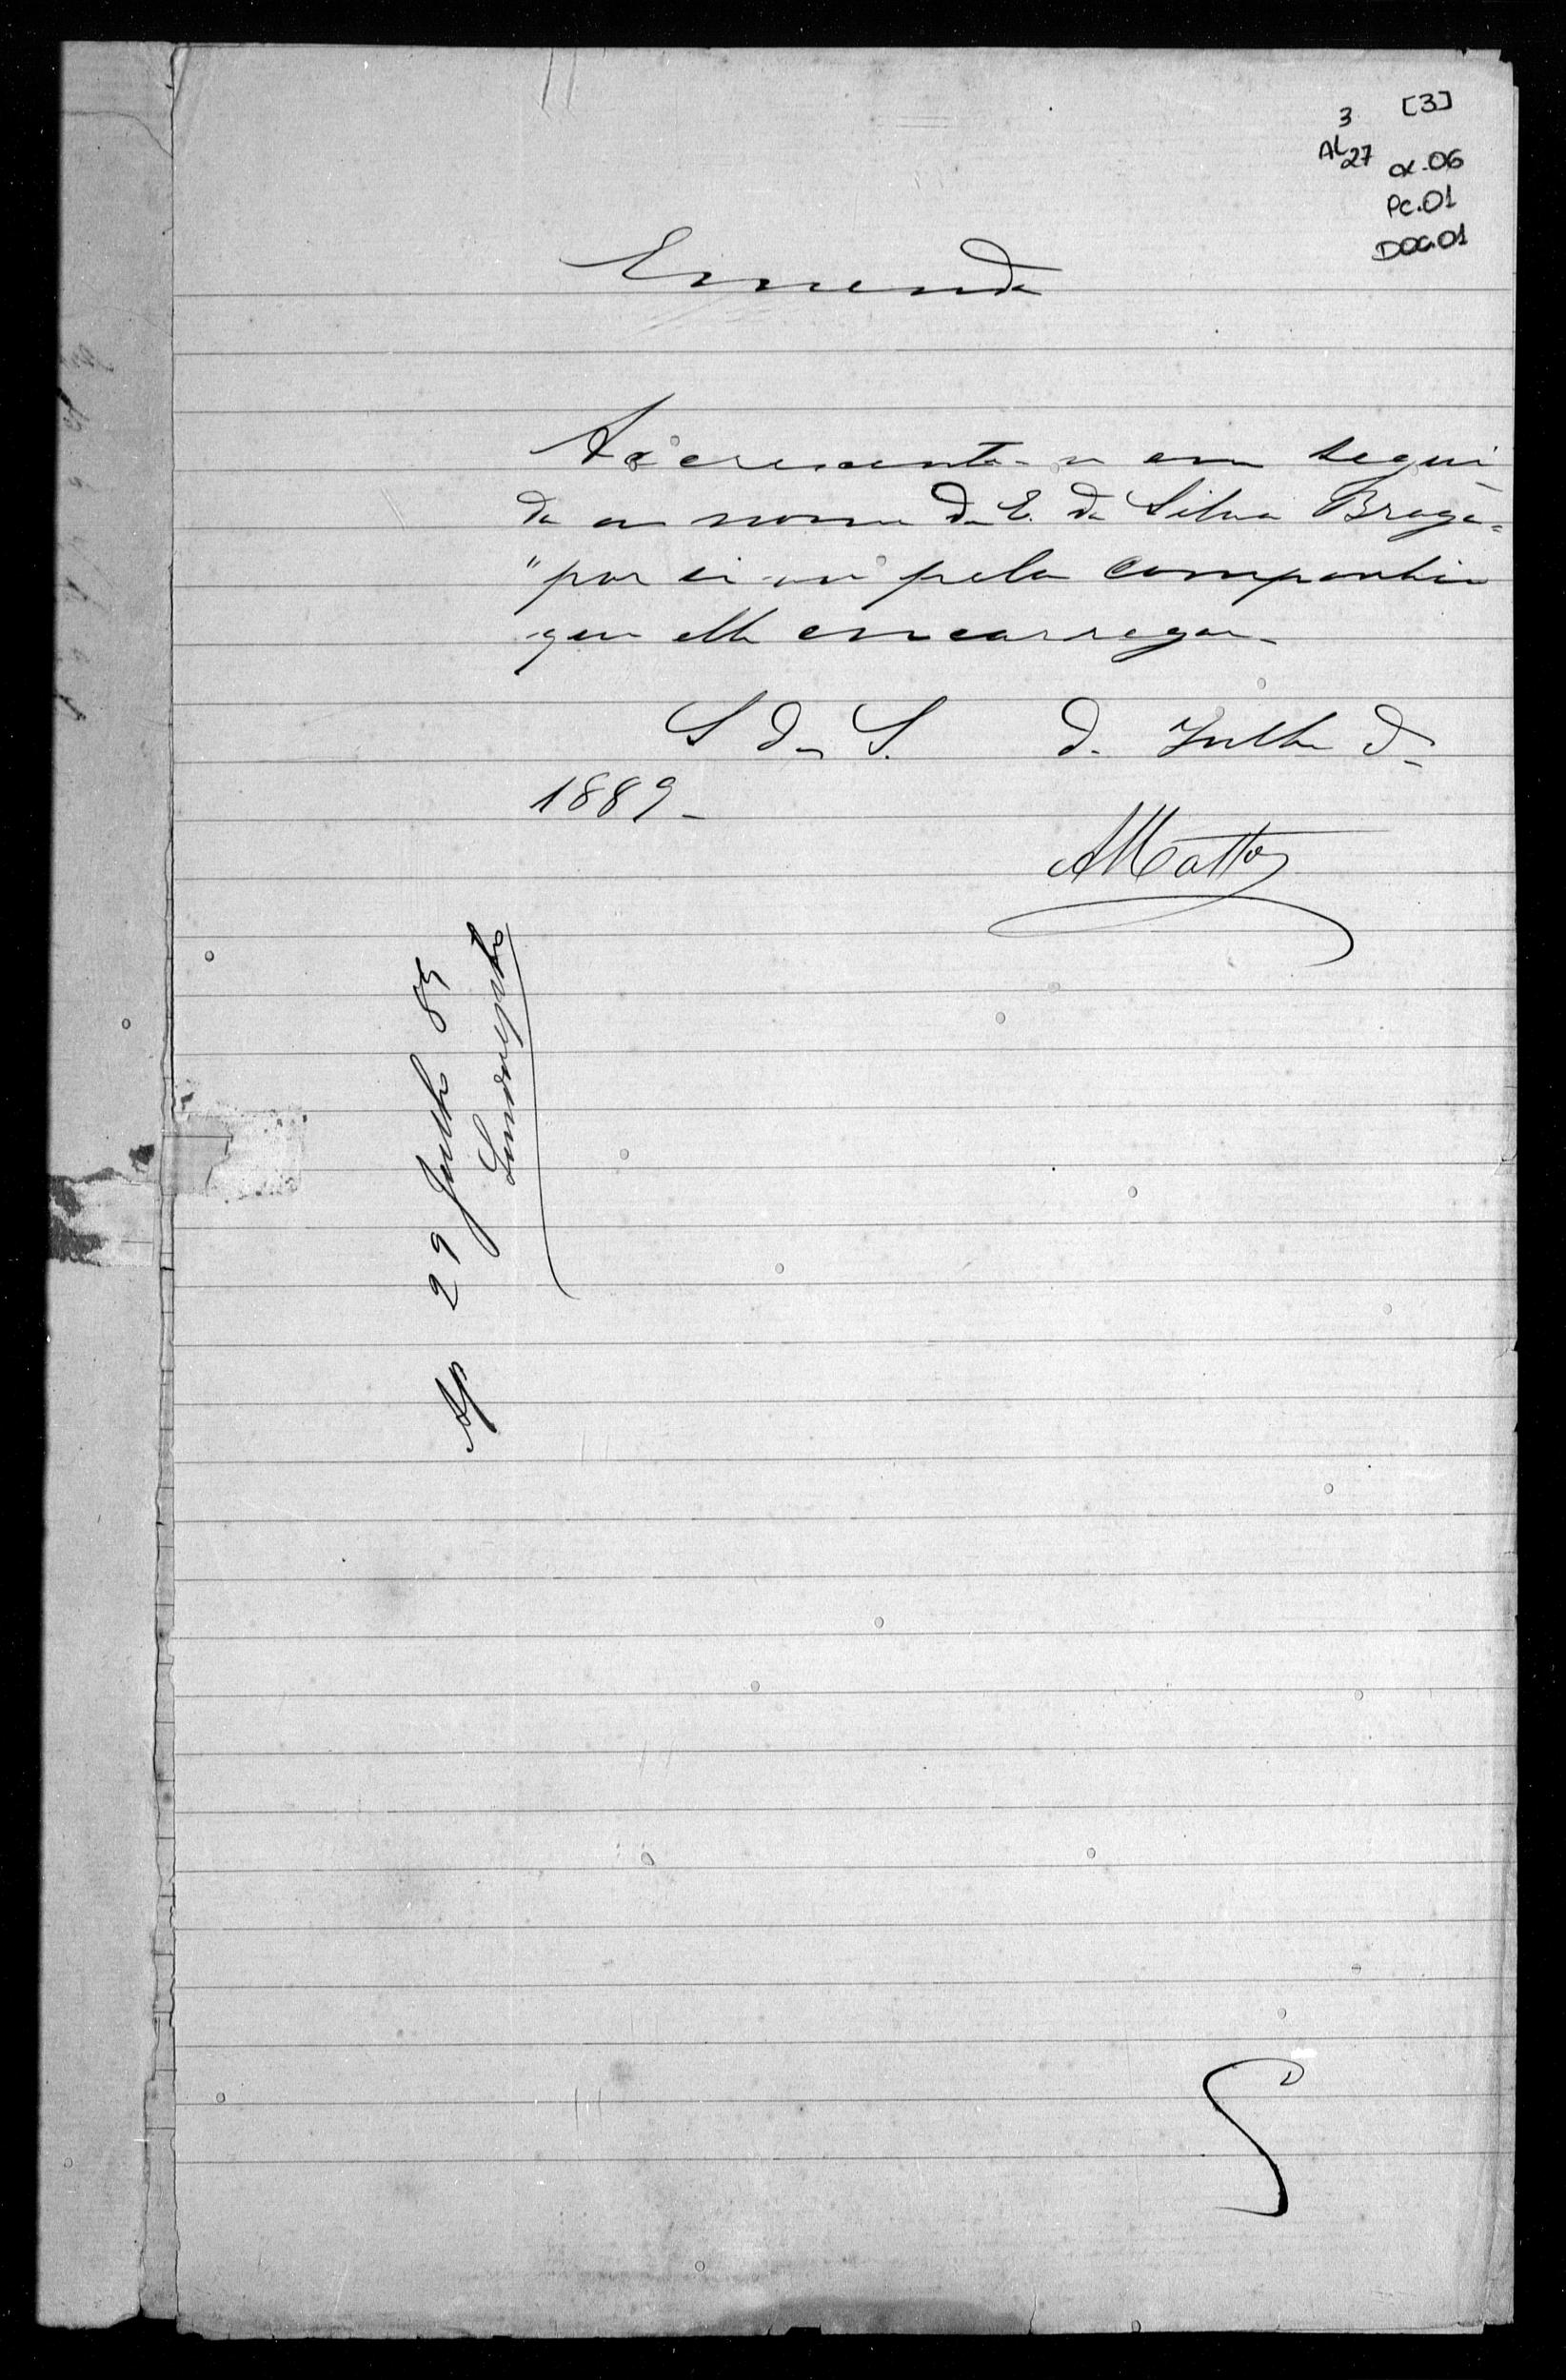 3 [3]
AL 27 cx.06
Pc.01
Doc.01
Emenda
Accrescente-se em segui
da ao nome de E. da Silva Braga=
"por si ou pela companhia
que elle encarregar-
S das S. de Julho de
1889-
AMattos
Ap 29 Julho 89